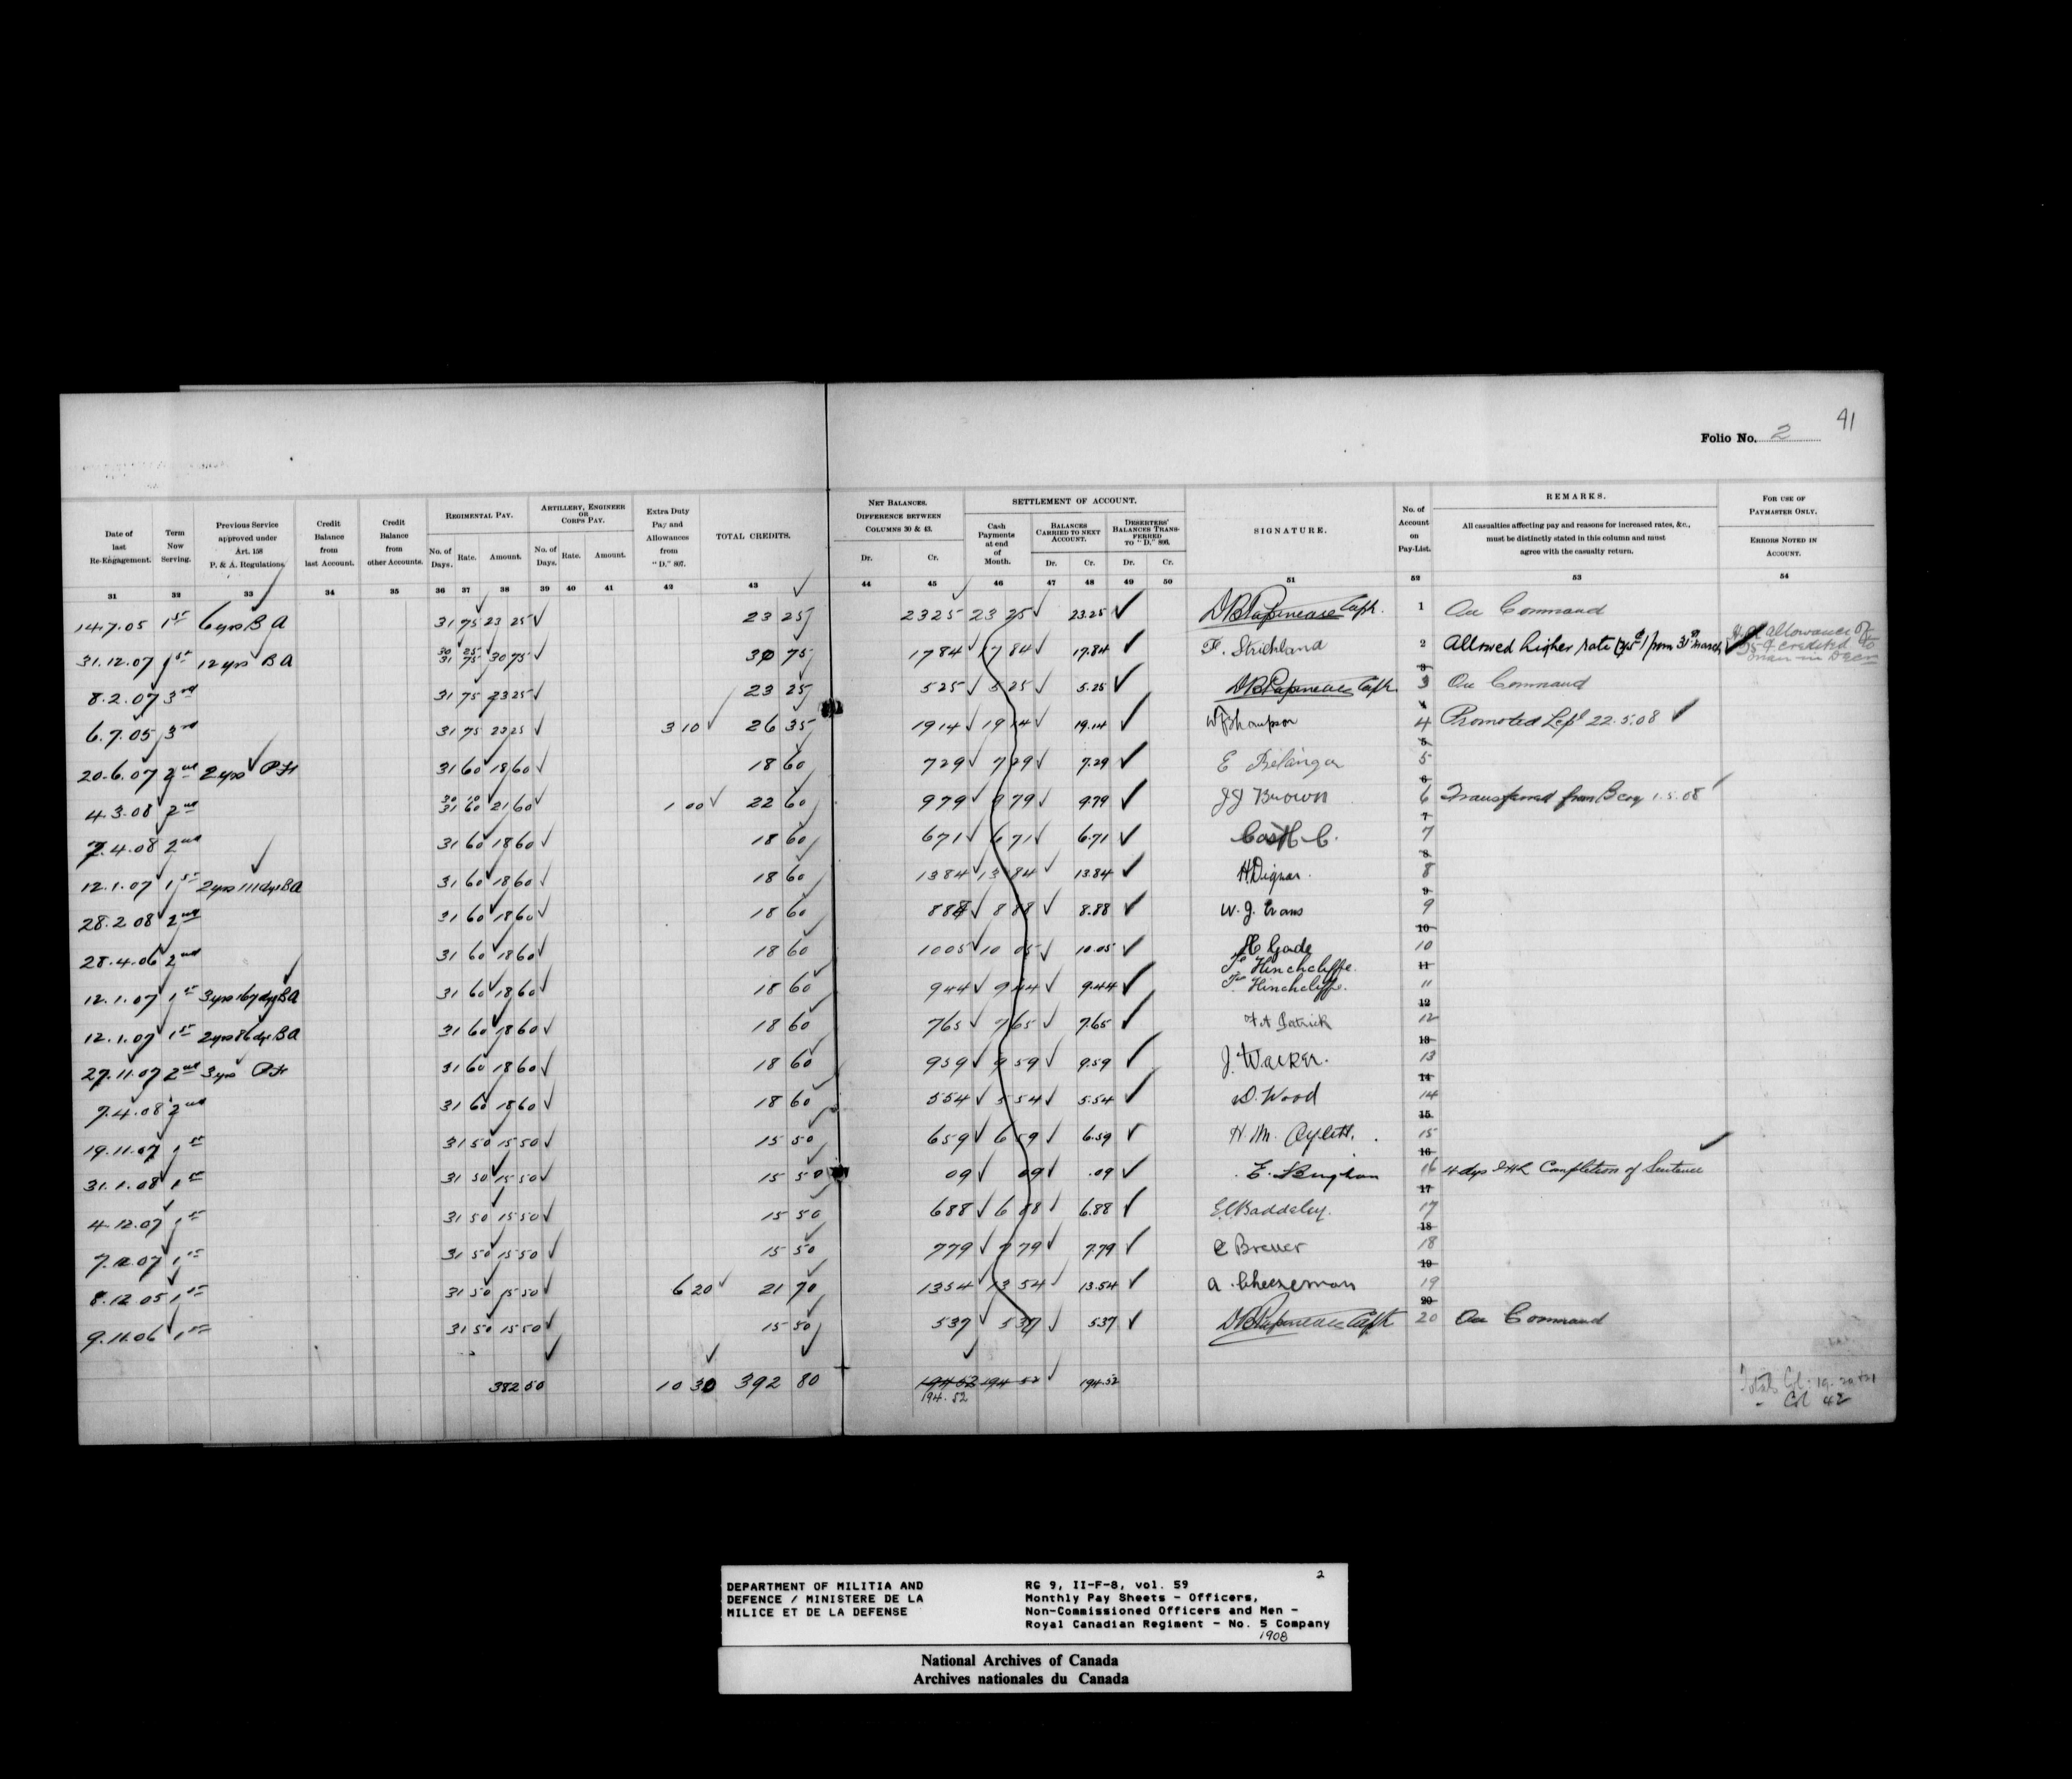 41
Folio No. 2
Date of last Re-Engagement.
Term Now Serving.
Previous Service approved under Art. 158 P. & A. Regulations
Credit Balance from last Account.
Credit Balance from other Accounts.
REGIMENTAL PAY.
No. of Days.
Rate.
Amount.
ARTILLERY, ENGINEER OR CORPS PAY.
No. of Days.
Rate.
Amount.
Extra Duty Pay and Allowances from "D." 807.
TOTAL CREDITS.
NET BALANCES. DIFFERENCE BETWEEN COLUMNS 30 & 43.
Dr.
Cr.
SETTLEMENT OF ACCOUNT.
Cash Payments at end of Month.
BALANCES CARRIED TO NEXT ACCOUNT.
Dr.
Cr.
DESERTERS' BALANCES TRANSFERRED TO "D."
Dr.
Cr.
SIGNATURE.
No. of Account on Pay-List.
REMARKS.
All casualties affecting pay and reasons for increased rates, &c., must be distinctly stated in this column and must agree with the casualty return.
FOR USE OF PAYMASTER ONLY.
ERRORS NOTED IN ACCOUNT.
31 32 33 34 35 36 37 38 39 40 41 42 43 44 45 46 47 48 49 50 51 52 53 54
14.7.05 1st 6 yrs B A 31 75 23 25 23 25 23 25 23 25 23.25 D B Papineau Capt. 1 On Command
31.12.07 1st 12 yrs B A 30 31 25 75 30 75 30 75 17 84 17 84 17.84 F. Strickland 2 Allowed higher rate from 31st March allowance credited
8.2.07 3rd 31 75 23 25 23 25 5 25 5 25 5.25 D B Papineau Capt. 3 On Command
6.7.05 3rd 31 75 23 25 3 10 26 35 19 14 19 14 19.14 Thompson 4 Promoted 22.5.08
20.6.07 2nd 2 yrs 31 60 18 60 18 60 7 29 7 29 7.29 E Belanger 5
4.3.08 2nd 30 31 10 60 21 60 1 00 22 60 9 79 9 79 9.79 J J Brown 6 Transferred from B Coy 1.5.08
7.4.08 2nd 31 60 18 60 18 60 6 71 6 71 6.71 C. 7
12.1.07 1st 2 yrs 111 dys B A 31 60 18 60 18 60 13 84 13 84 13.84 H Dignan. 8
28.2.08 2nd 31 60 18 60 18 60 8 88 8 88 8.88 W. J. Evans 9
28.4.06 2nd 31 60 18 60 18 60 10 05 10 05 10.05 H Goode 10
Hinchcliffe
12.1.07 1st 3 yrs 167 dys B A 31 60 18 60 18 60 9 44 9 44 9.44 Hinchcliffe. 11
12.1.07 1st 2 yrs 86 dys B A 31 60 18 60 18 60 7 65 7 65 7.65 Patrick 12
27.11.07 2nd 3 yrs 31 60 18 60 18 60 9 59 9 59 9.59 J. Walker. 13
7.4.08 2nd 31 60 18 60 18 60 5 54 5 54 5.54 D. Wood 14
19.11.07 1st 31 50 15 50 15 50 6 59 6 59 6.59 H. M. Aylett. 15
31.1.08 1st 31 50 15 50 15 50 09 09 .09 E. Bingham 16 4 dys Completion of Sentence
4.12.07 1st 31 50 15 50 15 50 6 88 6 88 6.88 Baddeley. 17
7.12.07 1st 31 50 15 50 15 50 7 79 7 79 7.79 C Brewer 18
8.12.05 1st 31 50 15 50 6 20 21 70 13 54 13 54 13.54 A. Cheeseman 19
9.11.06 1st 31 50 15 50 15 50 5 37 5 37 5.37 D B Papineau Capt 20 On Command
382 50 10 30 392 80 194 52 194 52 194.52
194.52
Totals Col. 19. 20 + 21
" Col 42
DEPARTMENT OF MILITIA AND
DEFENCE / MINISTERE DE LA
MILICE ET DE LA DEFENSE
2
RG 9, II-F-8, vol. 59
Monthly Pay Sheets - Officers,
Non-Commissioned Officers and Men -
Royal Canadian Regiment - No. 5 Company
1908
National Archives of Canada
Archives nationales du Canada